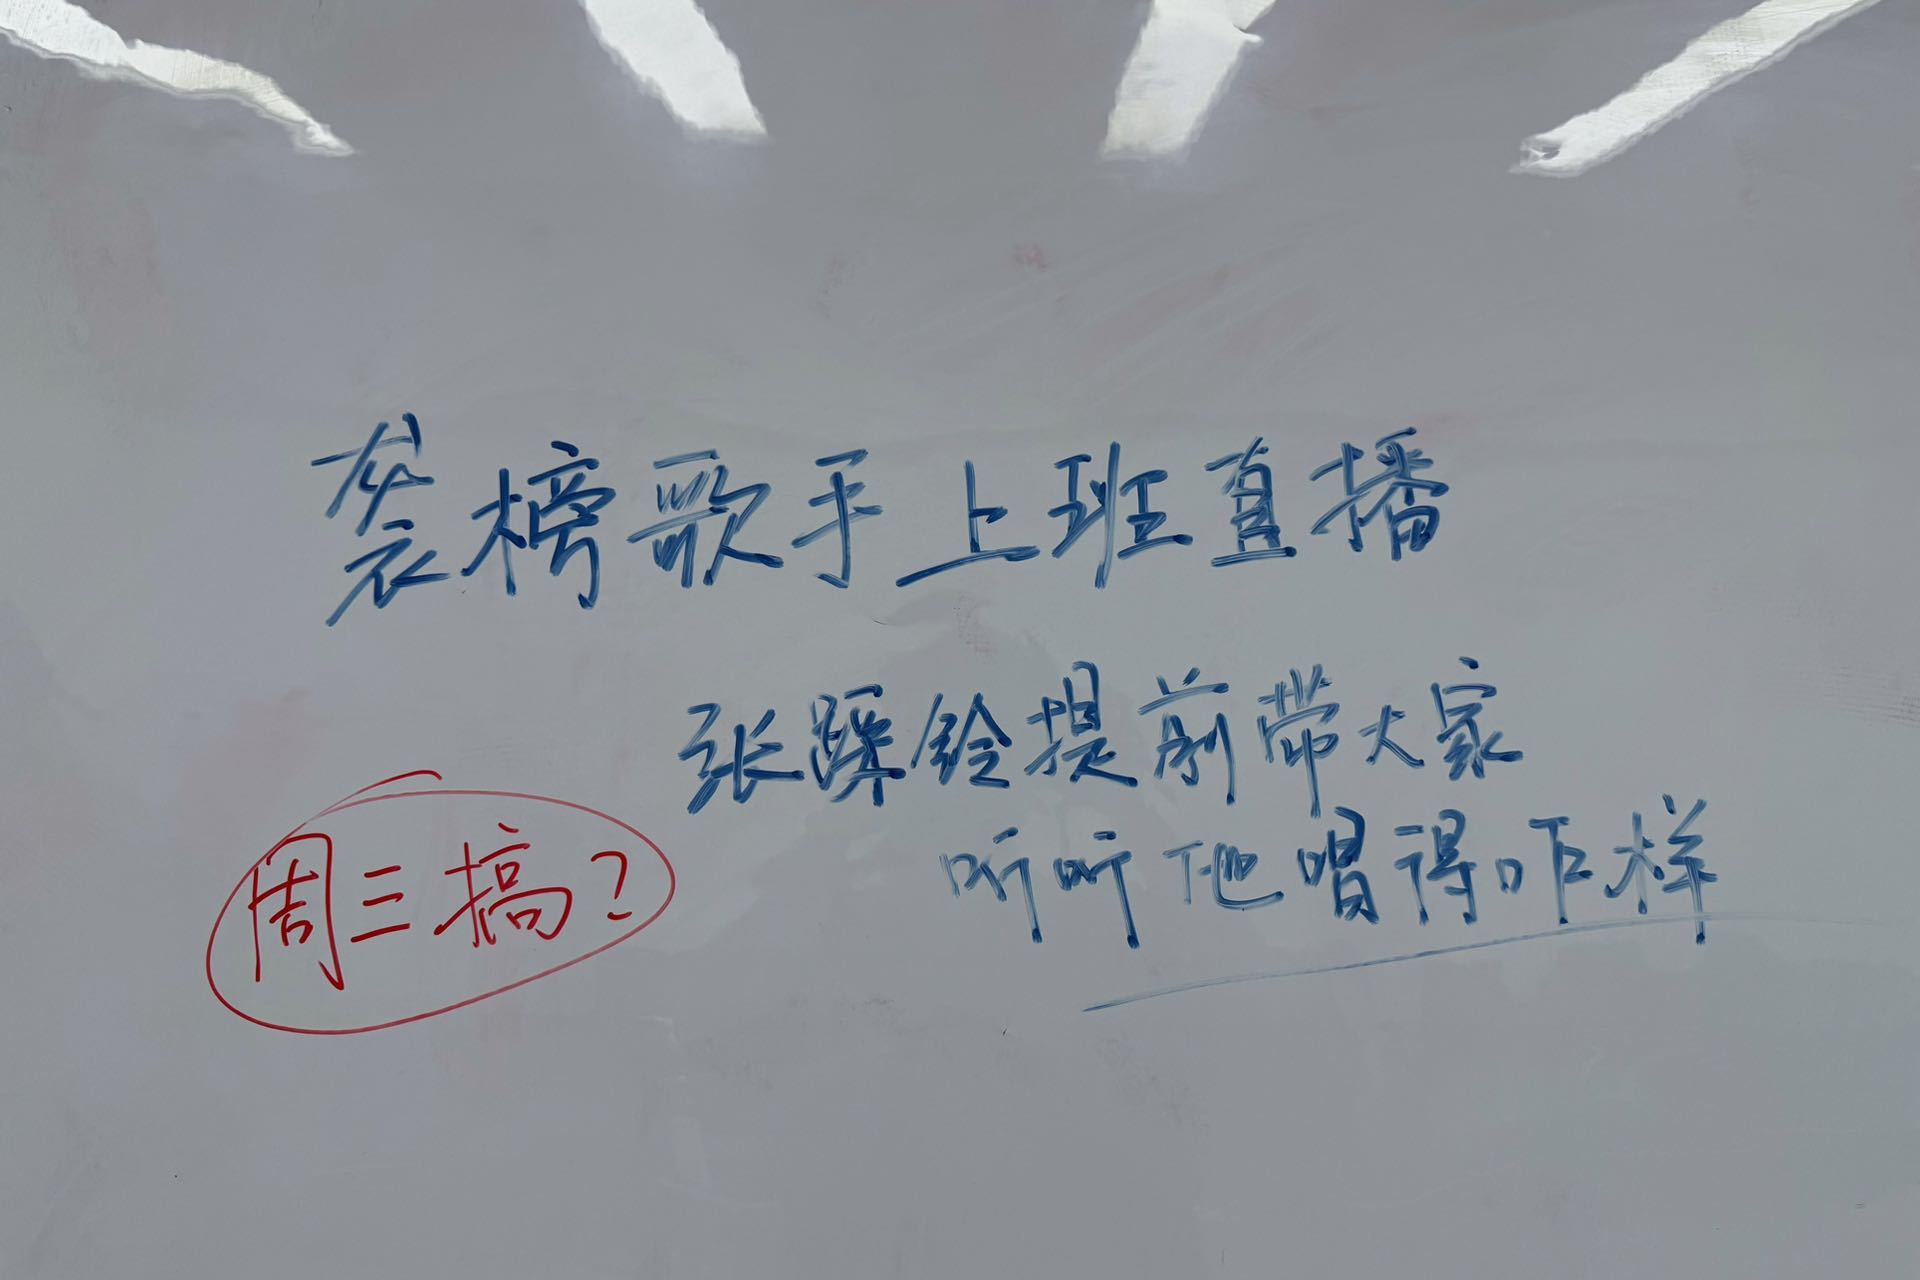 袭榜歌手上班直播
张踩铃提前带大家
听听他唱得咋样
周三搞?